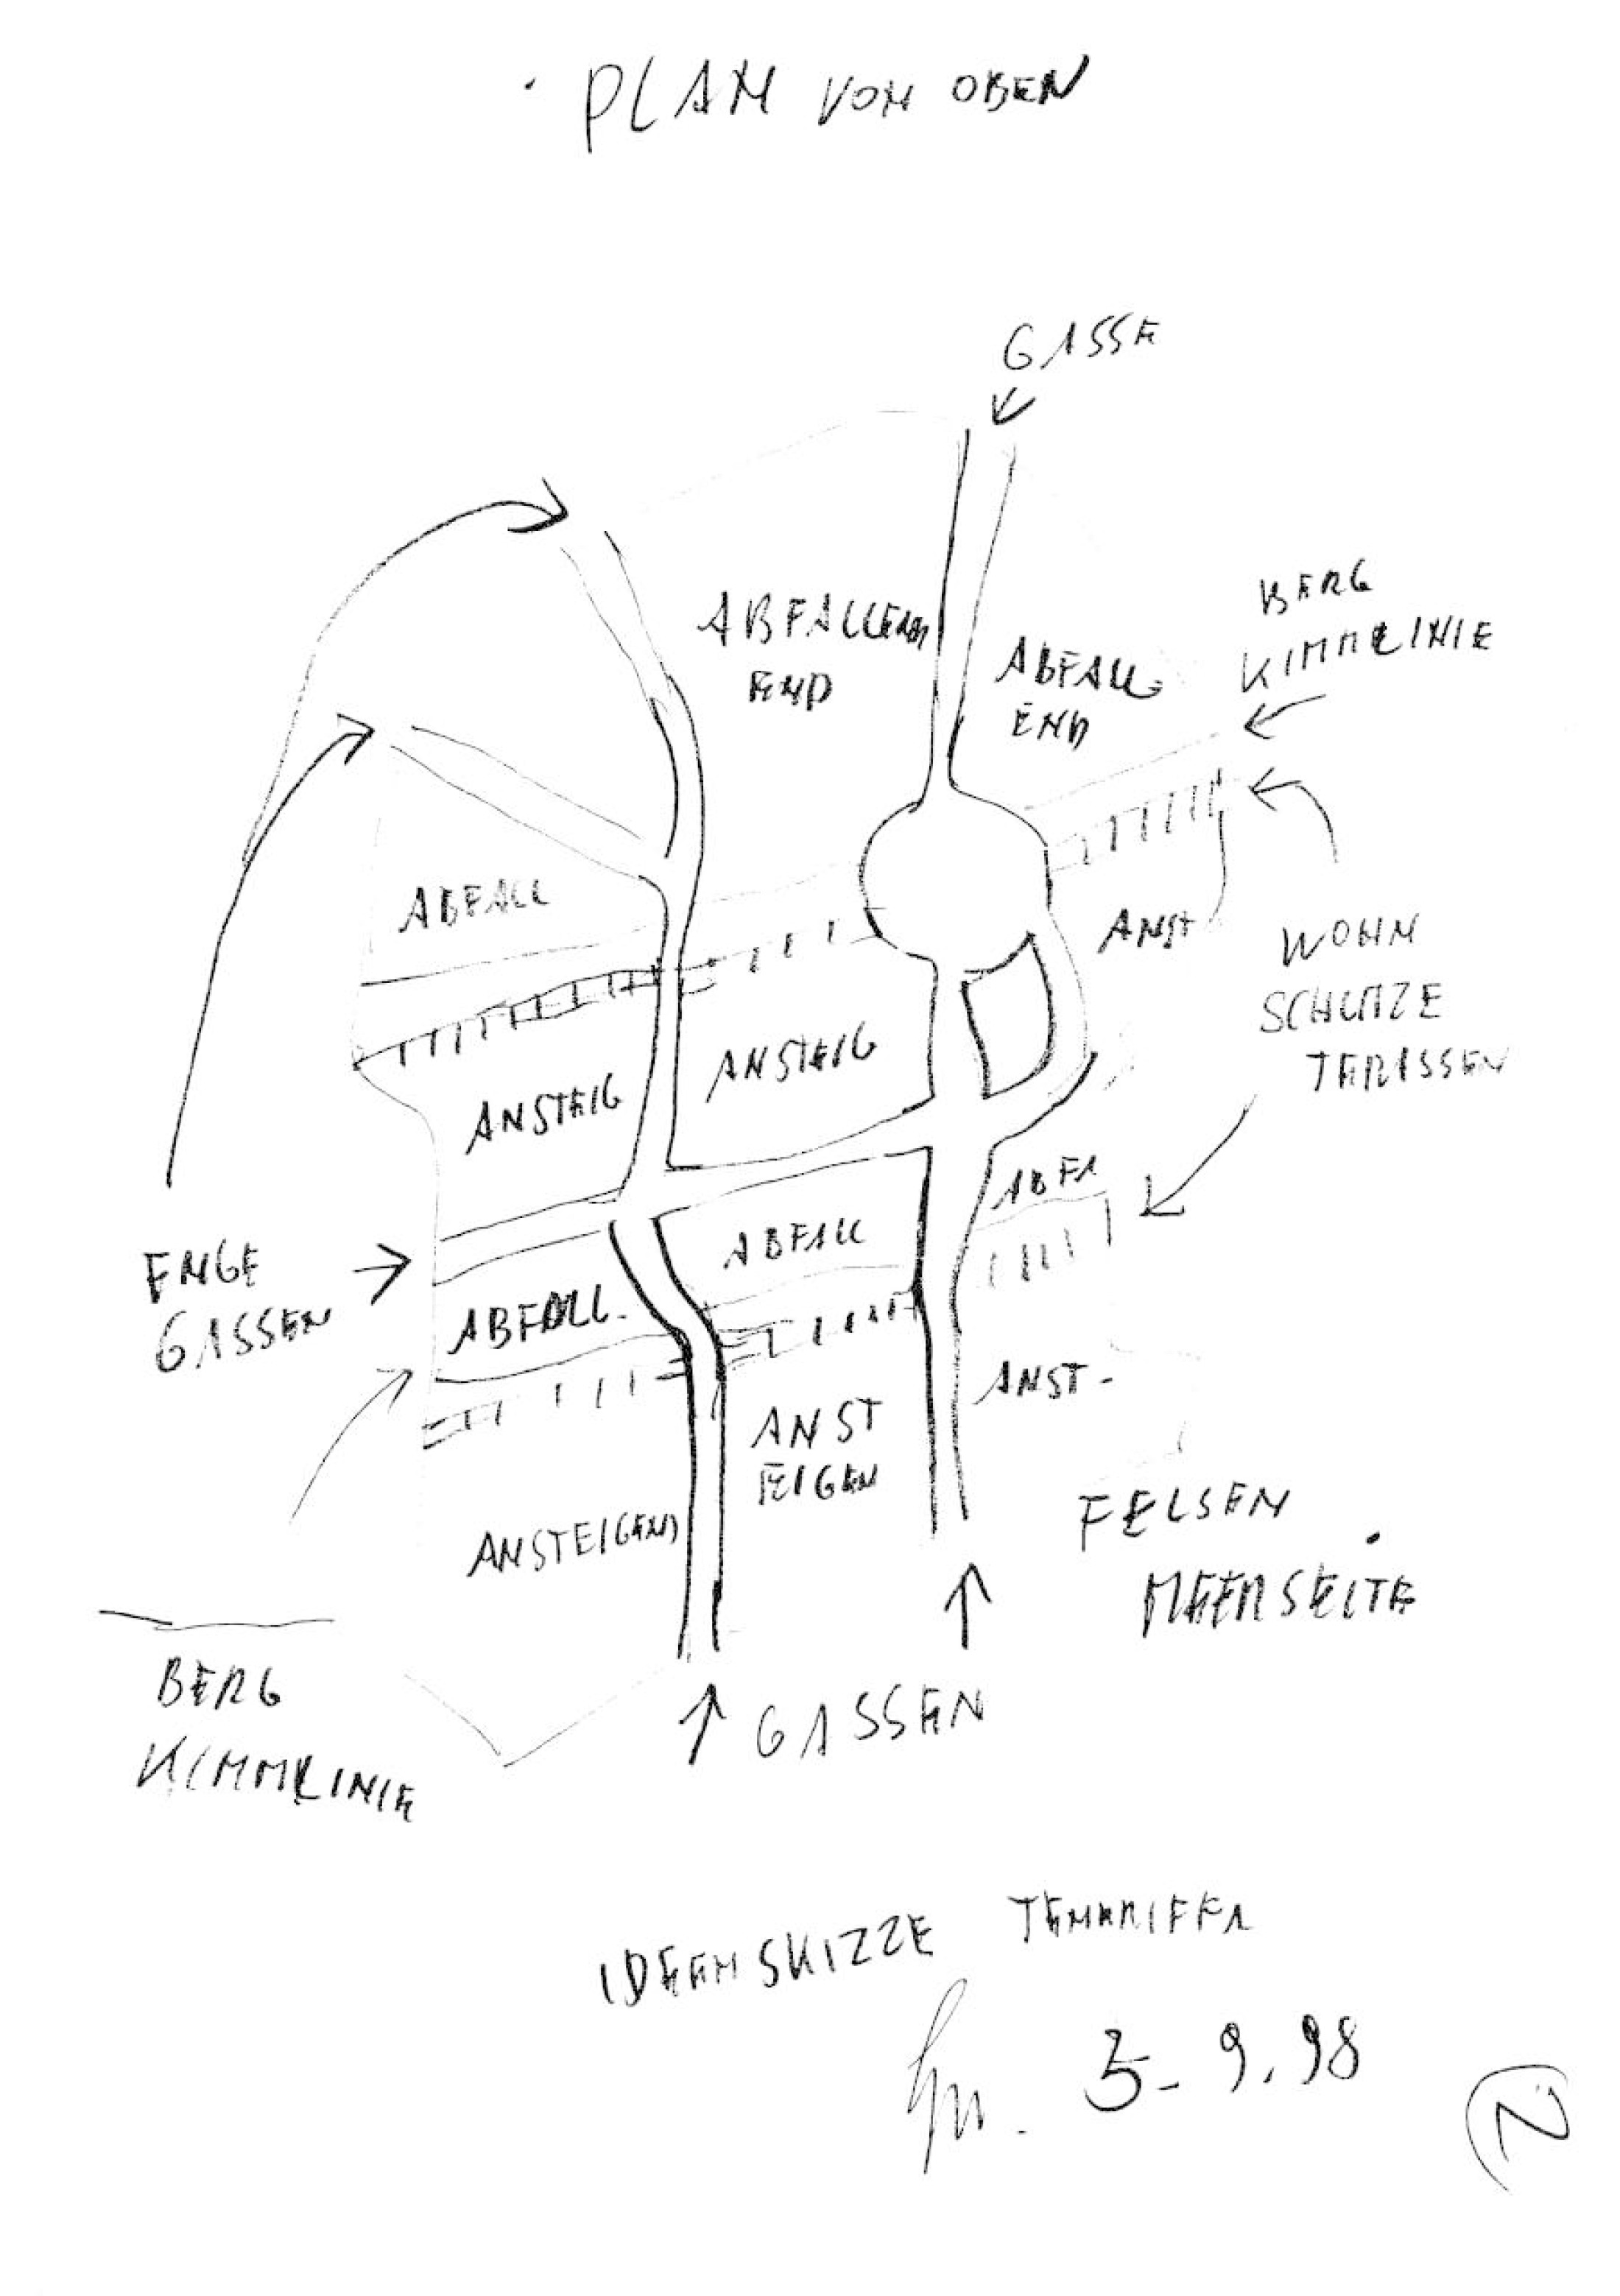 PLAN VON OBEN
GASSE
BERG
KIMMLINIE
ABFALLEND
END
ABFALL
END
ABFALL
ANST
WOHN
SCHLITZE
TERISSEN
ANSTEIG
ANSTEIG
ABFA
ENGE
GASSEN
ABFALL
ABFALL.
ANST-
ANST
EIGEN
ANSTEIGEND
FELSEN
MEERSEITE
BERG
KIMMLINIE
GASSEN
IDEENSKIZZE TENERIFFA
5-9.98